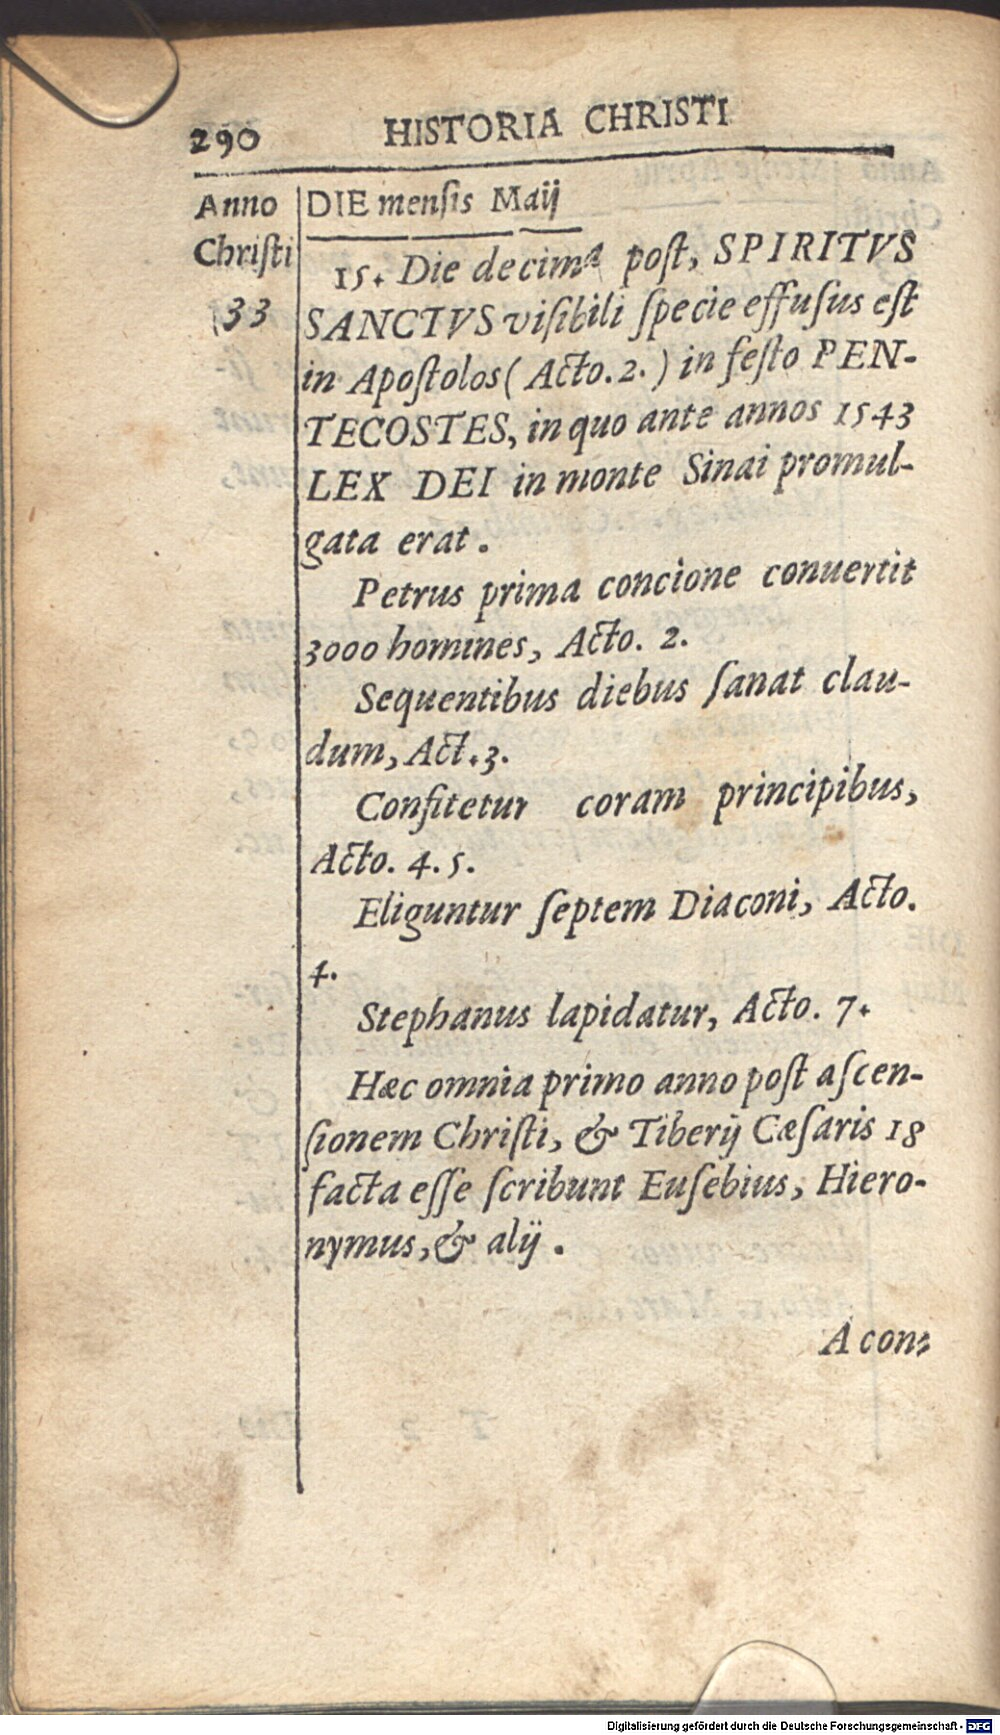 290 HISTORIA CHRISTI
Anno
Christi
33
DIE mensis Maij
15. Die decima post, SPIRITVS
SANCTVS visibili specie effusus est
in Apostolos (Acto. 2.) in festo PEN-
TECOSTES, in quo ante annos 1543
LEX DEI in monte Sinai promul-
gata erat.
Petrus prima concione conuertit
3000 homines, Acto. 2.
Sequentibus diebus sanat clau-
dum, Act. 3.
Confitetur coram principibus,
Acto. 4. 5.
Eliguntur septem Diaconi, Acto.
4.
Stephanus lapidatur, Acto. 7.
Hæc omnia primo anno post ascen-
sionem Christi, & Tiberij Cæsaris 18
facta esse scribunt Eusebius, Hiero-
nymus, & alij.
A con-
Digitalisierung gefördert durch die Deutsche Forschungsgemeinschaft - DFG